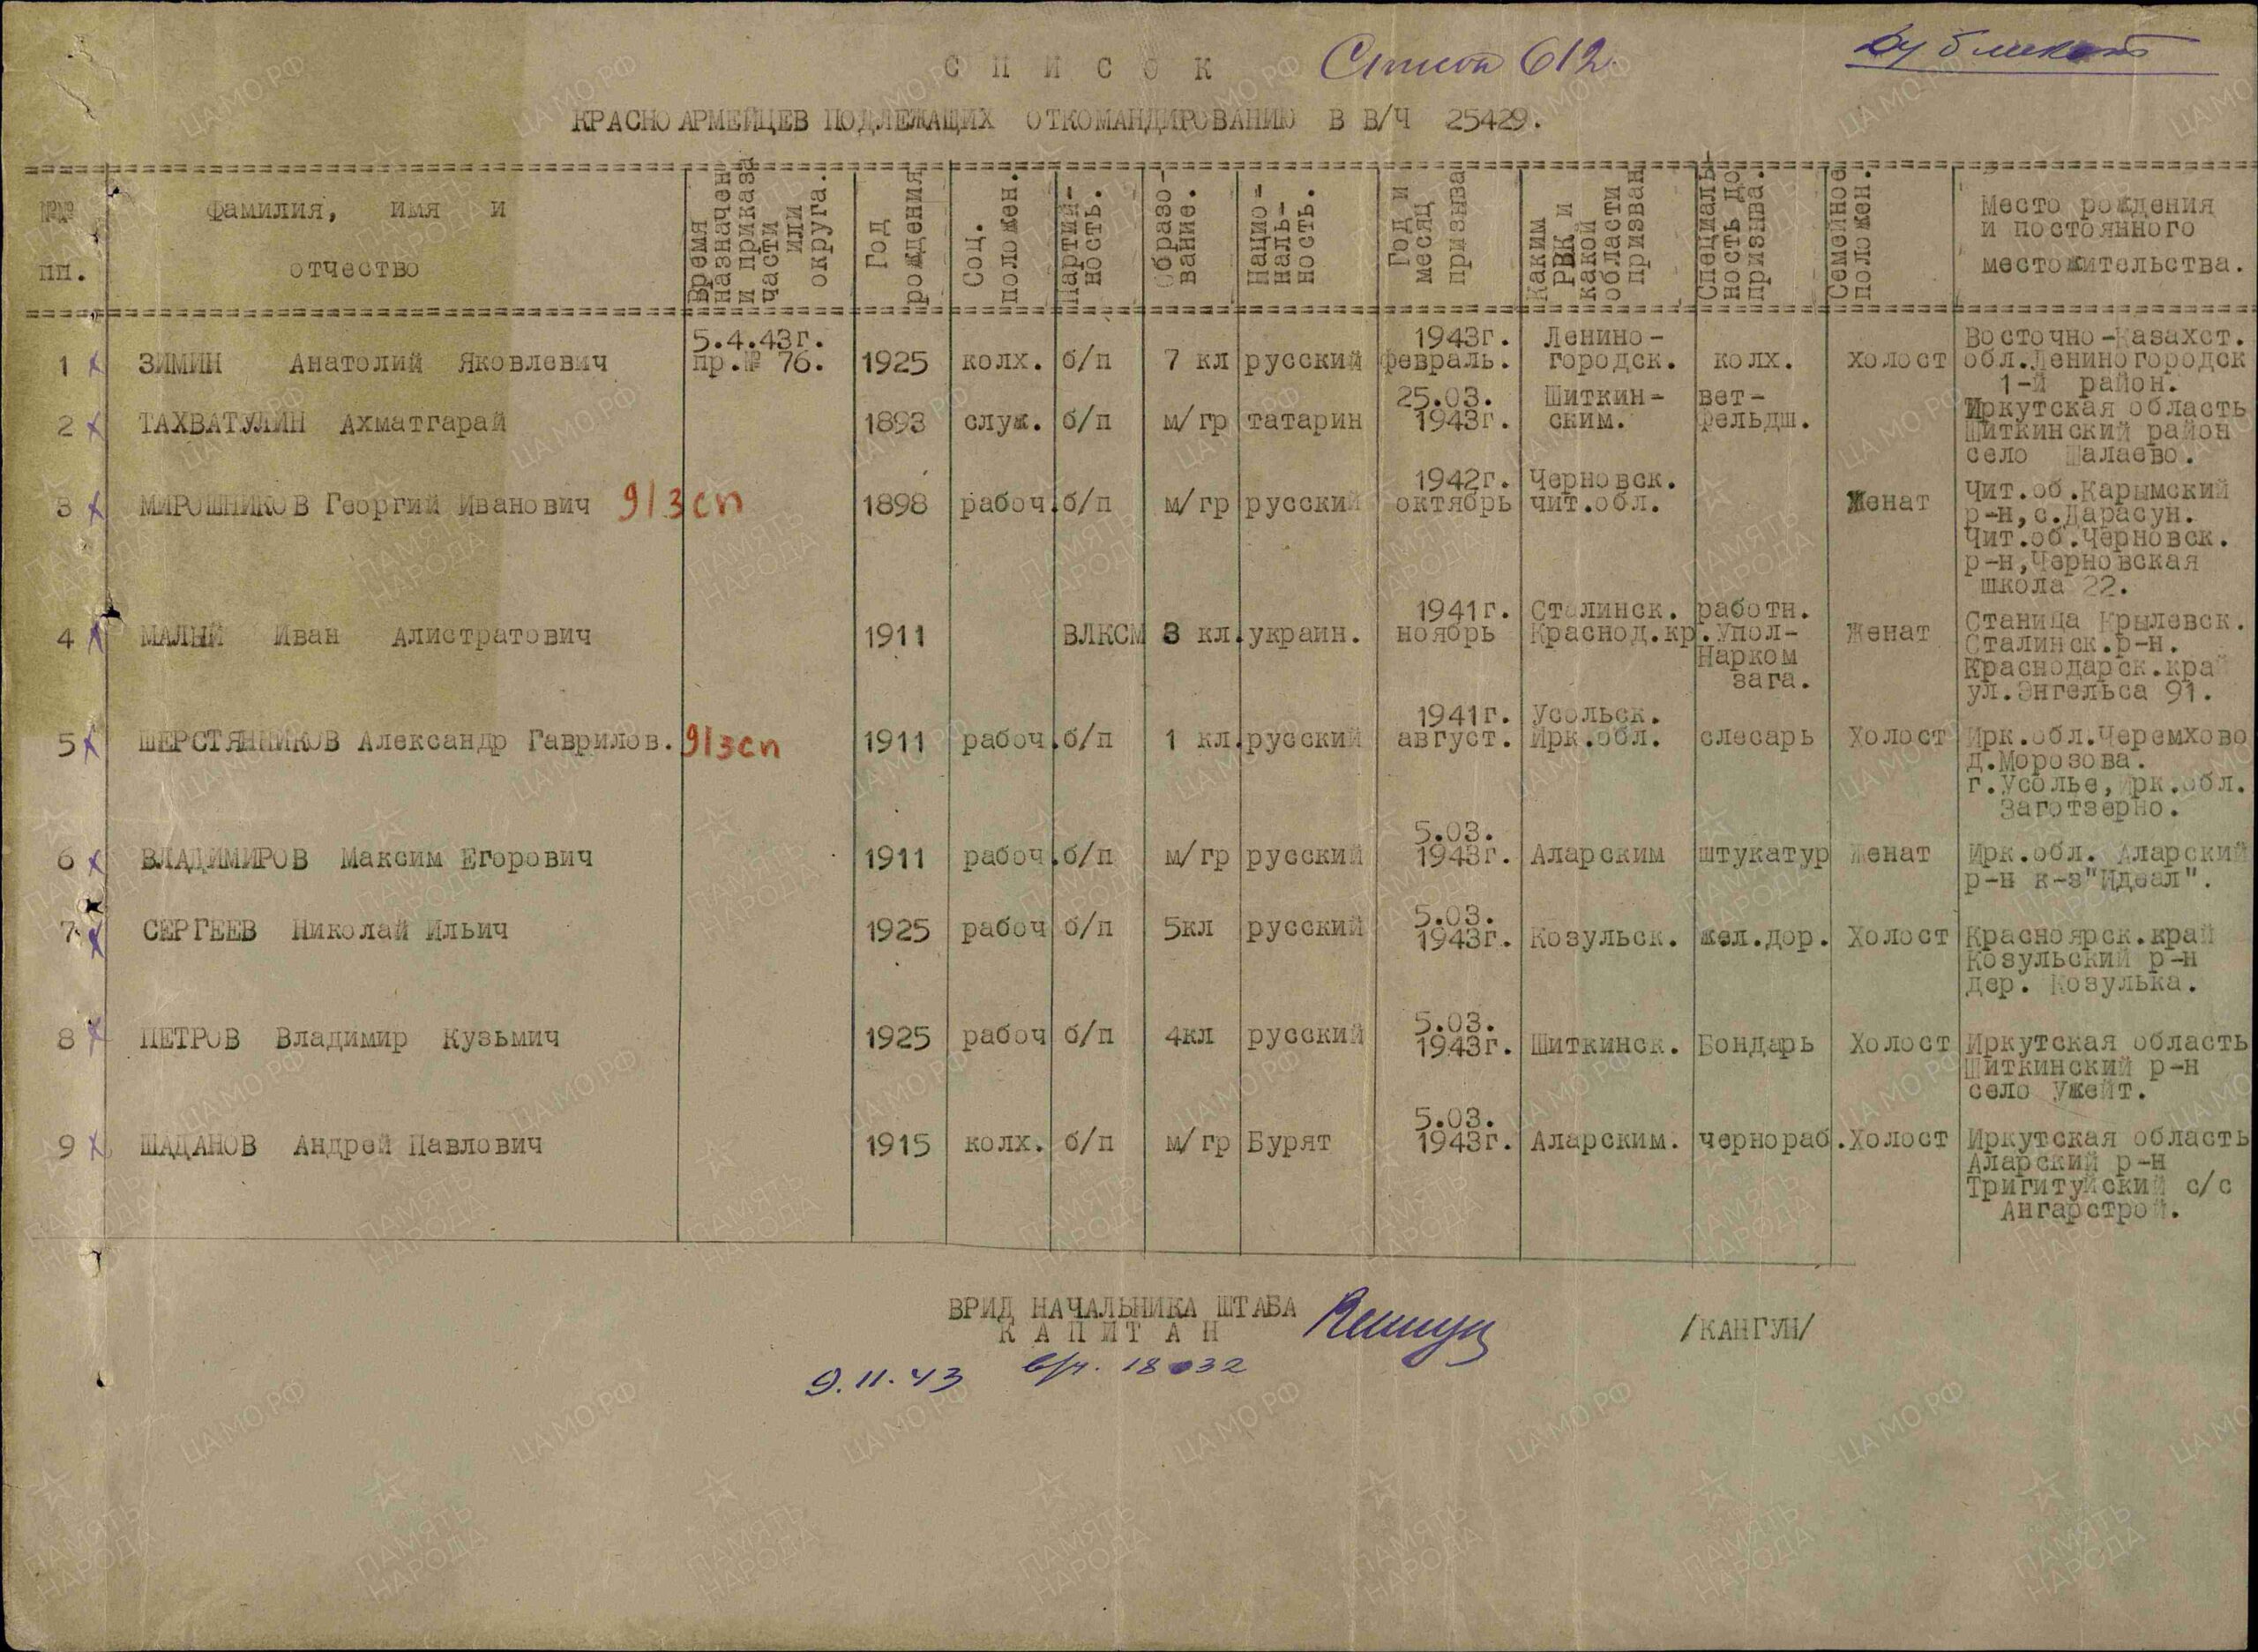 СПИСОК Список 612.
Дубликат
КРАСНОАРМЕЙЦЕВ ПОДЛЕЖАЩИХ ОТКОМАНДИРОВАНИЮ В В/Ч 25429.
№№ пп.
Фамилия, имя и
отчество
Время
назначен
и приказа
части
или
округа.
Год
рождения
Соц.
положен.
Партий-
ность.
Образо-
вание.
Нацио-
наль-
ность.
Год и
месяц
призыва
Каким
РВК и
какой
области
призван
Специаль-
ность до
призыва.
Семейное
положен.
Место рождения
и постоянного
местожительства.
5.4.43г. 1943г. Ленино- Восточно-Казахст.
1 ЗИМИН Анатолий Яковлевич пр.№ 76. 1925 колх. б/п 7 кл русский февраль. городск. колх. холост обл.Лениногородск
1-й район.
25.03. Шиткин- вет- Иркутская область
2 ТАХВАТУЛИН Ахматгарай 1893 служ. б/п м/гр татарин 1943г. ским. фельдш. Шиткинский район
село Шалаево.
1942г. Черновск. Чит.об.Карымский
3 МИРОШНИКОВ Георгий Иванович 9/зсп 1898 рабоч. б/п м/гр русский октябрь чит.обл. Женат р-н,с.Дарасун.
Чит.об.Черновск.
р-н,Черновская
школа 22.
1941г. Сталинск. работн. Станица Крылевск.
4 МАЛЫЙ Иван Алистратович 1911 ВЛКСМ 3 кл. украин. ноябрь Краснод.кр. Упол- Женат Сталинск.р-н.
Нарком Краснодарск.край
зага. ул.Энгельса 91.
1941г. Усольск.
5 ШЕРСТЯННИКОВ Александр Гаврилов. 9/зсп 1911 рабоч. б/п 1 кл. русский август. Ирк.обл. слесарь Холост Ирк.обл.Черемхово
д.Морозова.
г.Усолье,Ирк.обл.
Заготзерно.
5.03.
6 ВЛАДИМИРОВ Максим Егорович 1911 рабоч. б/п м/гр русский 1943г. Аларским штукатур Женат Ирк.обл. Аларский
р-н к-з"Идеал".
5.03.
7 СЕРГЕЕВ Николай Ильич 1925 рабоч б/п 5кл русский 1943г. Козульск. жел.дор. Холост Красноярск.край
Козульский р-н
дер. Козулька.
5.03.
8 ПЕТРОВ Владимир Кузьмич 1925 рабоч б/п 4кл русский 1943г. Шиткинск. Бондарь Холост Иркутская область
Шиткинский р-н
село Ужейт.
5.03.
9 ШАДАНОВ Андрей Павлович 1915 колх. б/п м/гр Бурят 1943г. Аларским. чернораб. Холост Иркутская область
Аларский р-н
Тригитуйский с/с
Ангарстрой.
ВРИД НАЧАЛЬНИКА ШТАБА
КАПИТАН /КАНГУН/
9.11.43 в/ч. 18032